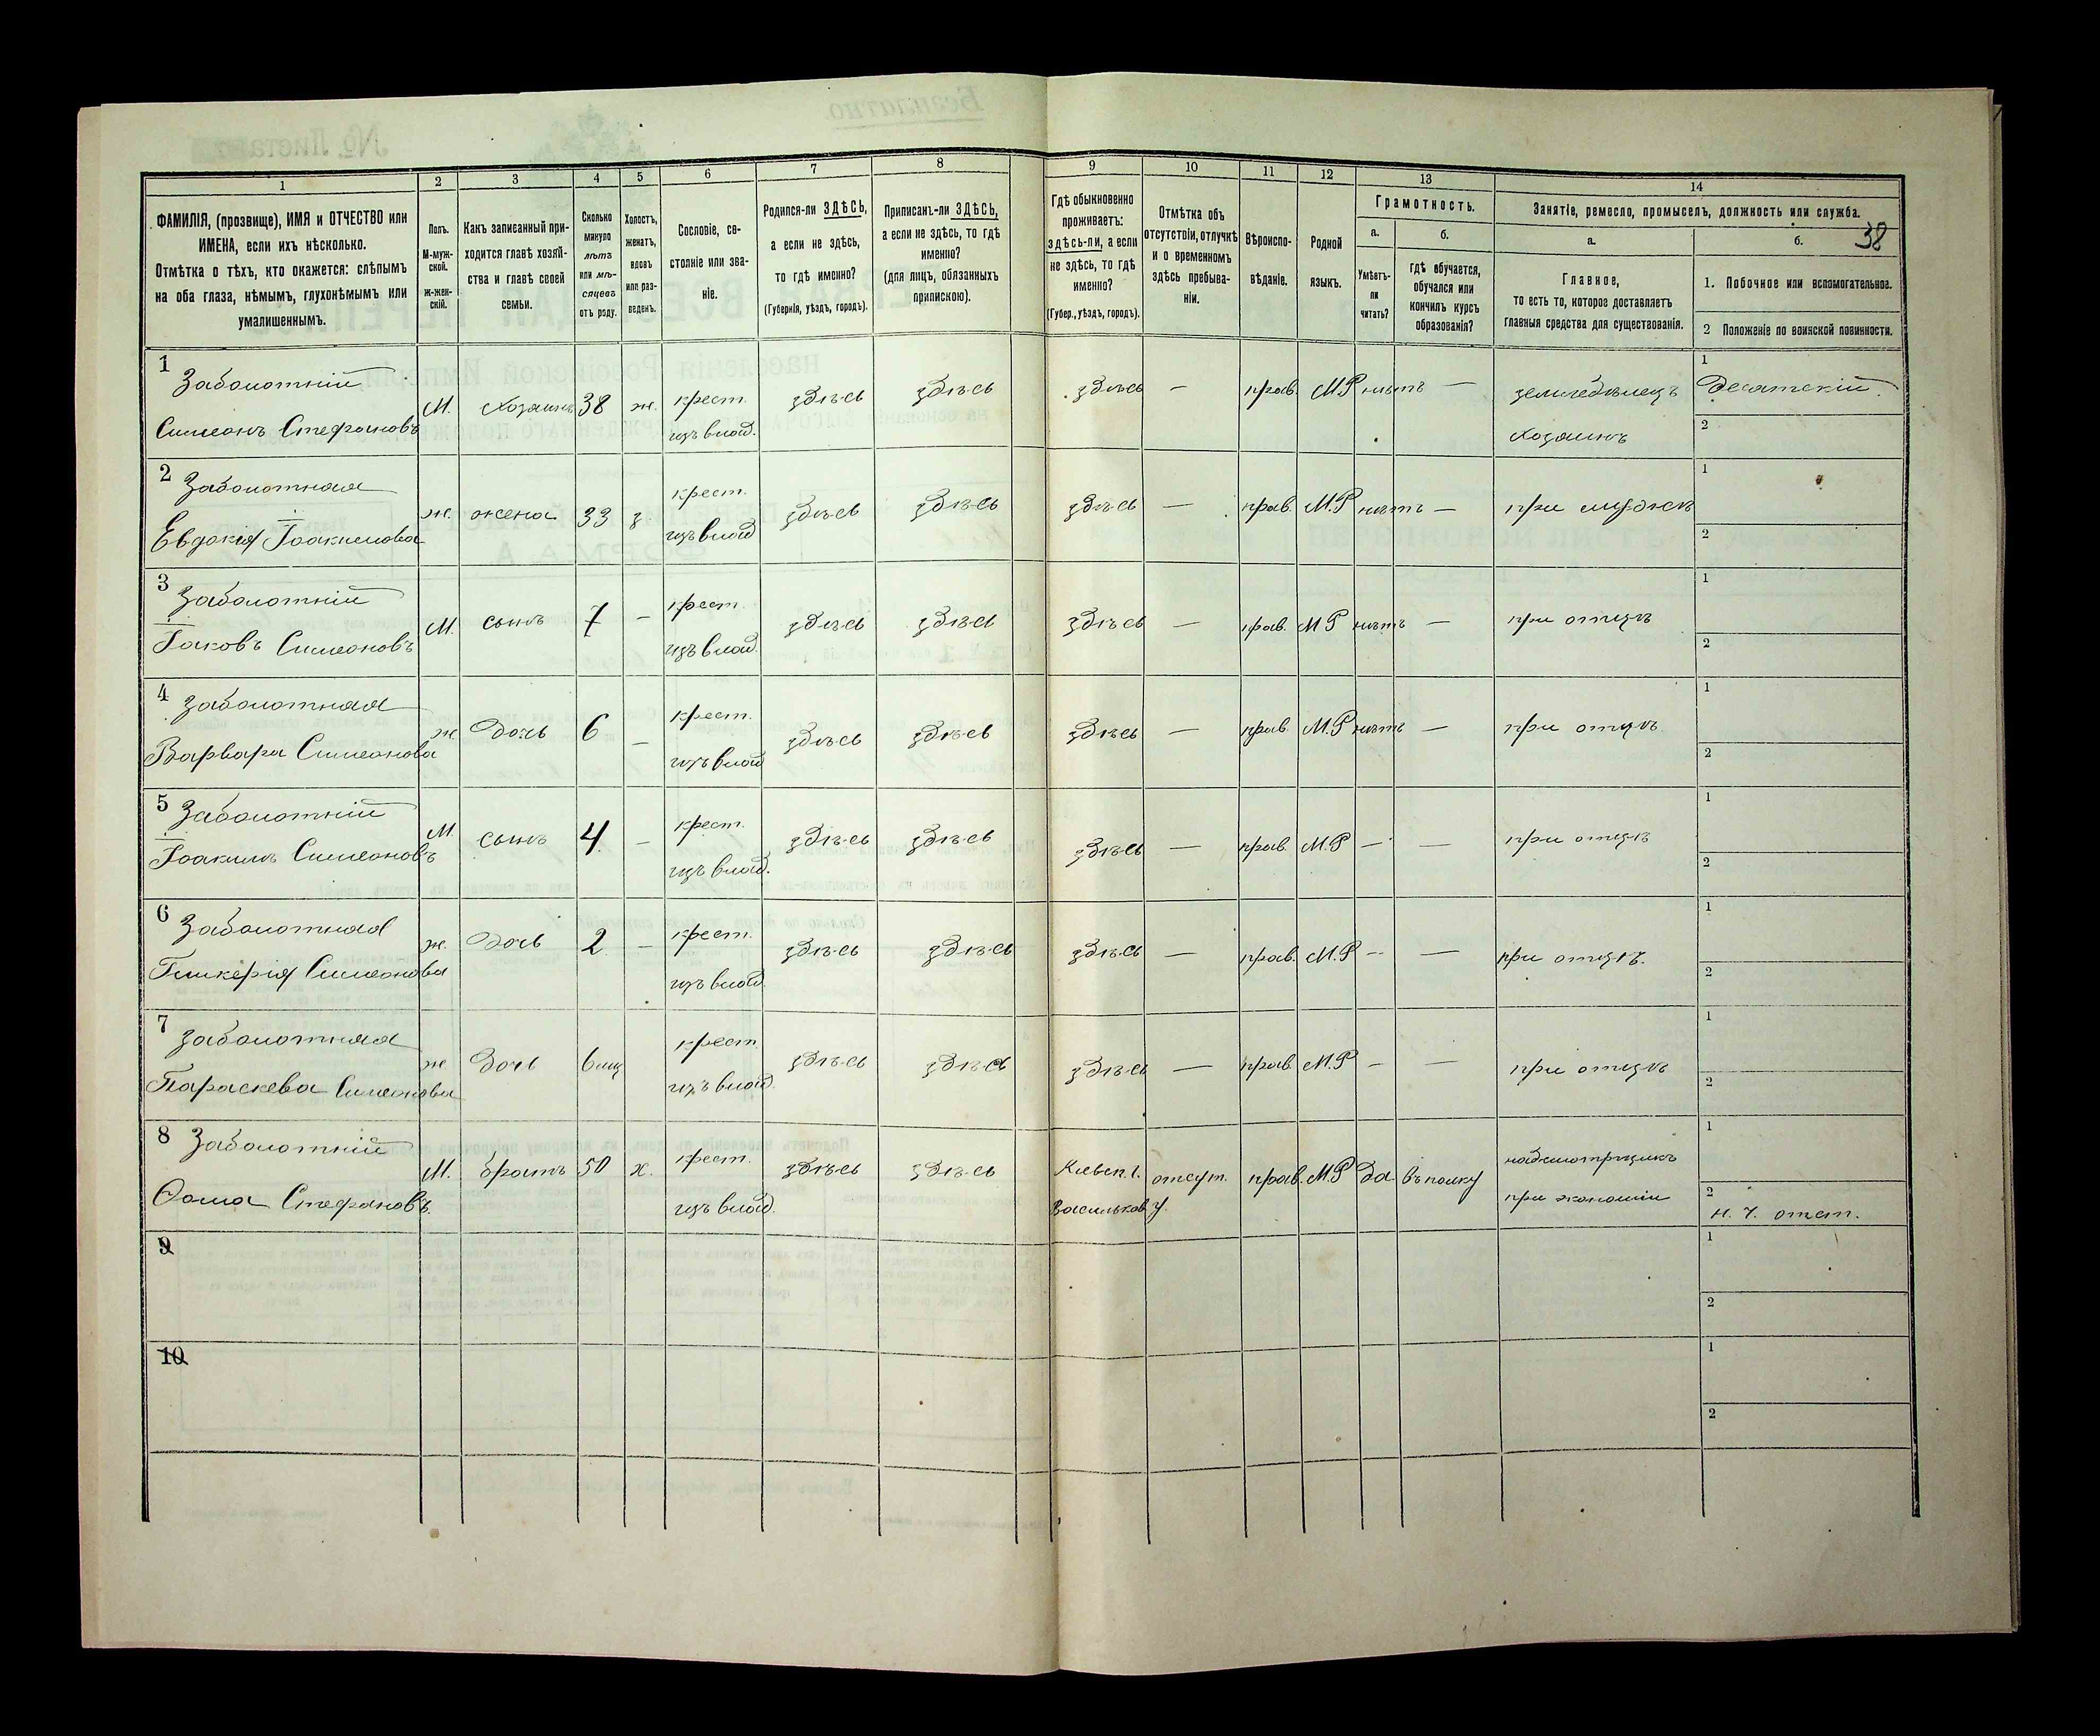 38
1 2 3 4 5 6 7 8 9 10 11 12 13 14
ФАМИЛІЯ, (прозвище), ИМЯ и ОТЧЕСТВО или ИМЕНА, если ихъ нѣсколько.
Отмѣтка о тѣхъ, кто окажется: слѣпымъ на оба глаза, нѣмымъ, глухонѣмымъ или умалишеннымъ.
Полъ. М-муж-ской. ж-жен-скій.
Какъ записанный при-ходится главѣ хозяй-ства и главѣ своей семьи.
Сколько минуло лѣтъ или мѣ-сяцевъ отъ роду.
Холостъ, женатъ, вдовъ или раз-веденъ.
Сословіе, со-стояніе или зва-ніе.
Родился-ли ЗДѢСЬ, а если не здѣсь, то гдѣ именно? (Губернія, уѣздъ, городъ).
Приписанъ-ли ЗДѢСЬ, а если не здѣсь, то гдѣ именно? (для лицъ, обязанныхъ припискою).
Гдѣ обыкновенно проживаетъ: здѣсь-ли, а если не здѣсь, то гдѣ именно? (Губер., уѣздъ, городъ).
Отмѣтка объ отсутствіи, отлучкѣ и о временномъ здѣсь пребыва-ніи.
Вѣроиспо-вѣданіе.
Родной языкъ.
Грамотность.
а. Умѣетъ-ли читать?
б. гдѣ обучается, обучался или кончилъ курсъ образованія?
Занятіе, ремесло, промыселъ, должность или служба.
а. Главное, то есть то, которое доставляетъ главныя средства для существованія.
б. 1. Побочное или вспомогательное.
2 Положеніе по воинской повинности.
1 Заболотній Симеонъ Стефановъ М. Хозяинъ 38 ж. крест. изъ влад. здѣсь здѣсь здѣсь — прав. М.Р нѣтъ — земледѣлецъ хозяинъ 1 Десятскій. 2
2 Заболотная Евдокія Іоакимова ж. жена 33 з. крест. изъ влад здѣсь здѣсь здѣсь — прав. М.Р нѣтъ — при мужѣ 1 2
3 Заболотній Іаковъ Симеоновъ М. сынъ 7 — крест. изъ влад. здѣсь здѣсь здѣсь — прав. М Р нѣтъ — при отцѣ 1 2
4 Заболотная Варвара Симеонова ж дочь 6 — крест. изъ влад здѣсь здѣсь здѣсь — прав. М.Р нѣтъ — при отцѣ 1 2
5 Заболотній Іоакимъ Симеоновъ М. сынъ 4. — крест. изъ влад. здѣсь здѣсь здѣсь — прав. М.Р — — при отцѣ 1 2
6 Заболотная Гликерія Симеонова ж. дочь 2 — крест. изъ влад. здѣсь здѣсь здѣсь — прав. М.Р — — при отцѣ. 1 2
7 Заболотная Параскева Симеонова ж дочь 6 мц крест. изъ влад. здѣсь здѣсь здѣсь — прав. М.Р — — при отцѣ 1 2
8 Заболотній Ѳома Стефановъ М. братъ 50 х. крест. изъ влад. здѣсь здѣсь Кіевск. г. Васильков у. отсут. прав. М.Р Да. въ полку надсмотрщикъ при экономіи 1 2 н. ч. отст.
9 1 2
10 1 2